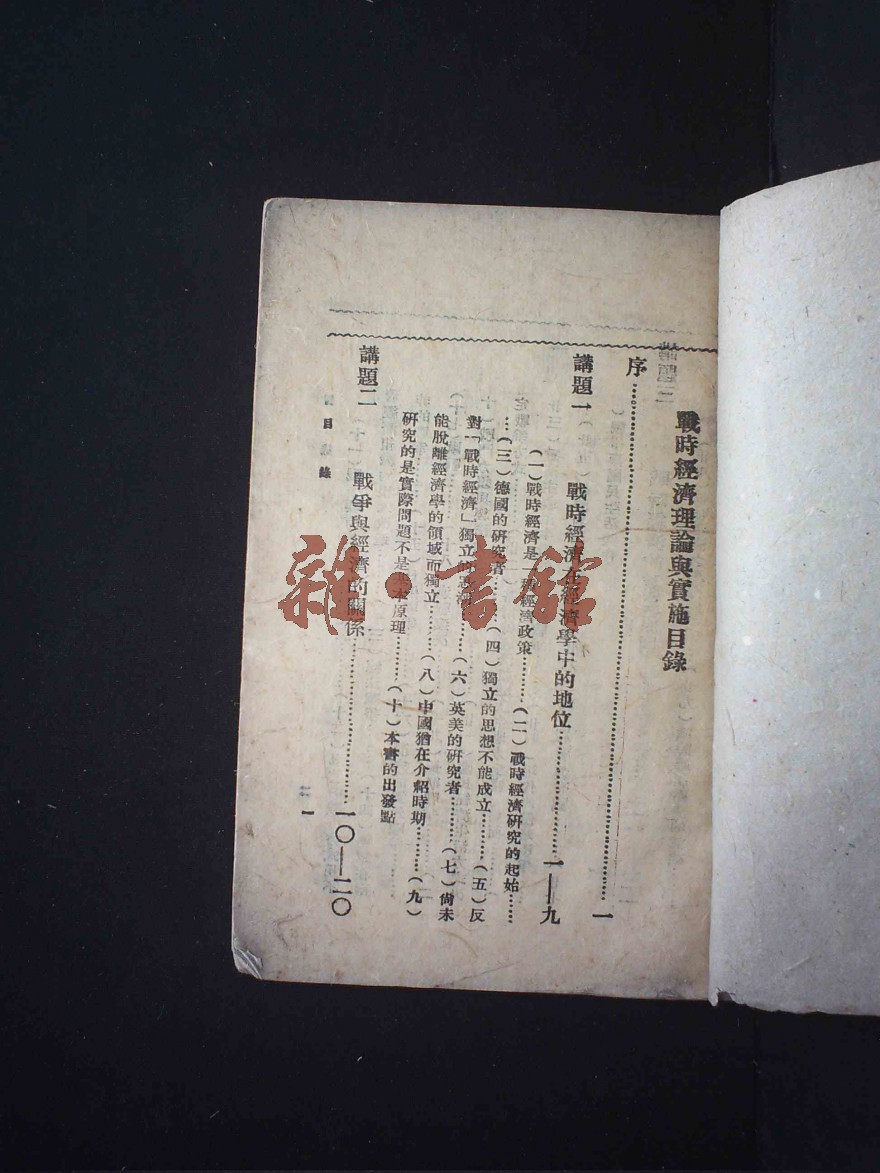 戰時經濟理論與實施目錄
序…………………………一
講題一 戰時經濟在經濟學中的地位…………一——九
（一）戰時經濟是一種經濟政策………（二）戰時經濟研究的起始……
…（三）德國的研究者………（四）獨立的思想不能成立………（五）反
對「戰時經濟」獨立的思潮………（六）英美的研究者………（七）尙未
能脫離經濟學的領域而獨立………（八）中國猶在介紹時期………（九）
研究的是實際問題不是基本原理………（十）本書的出發點
講題二 戰爭與經濟的關係…………一〇——二〇
目錄
一
雜·書館